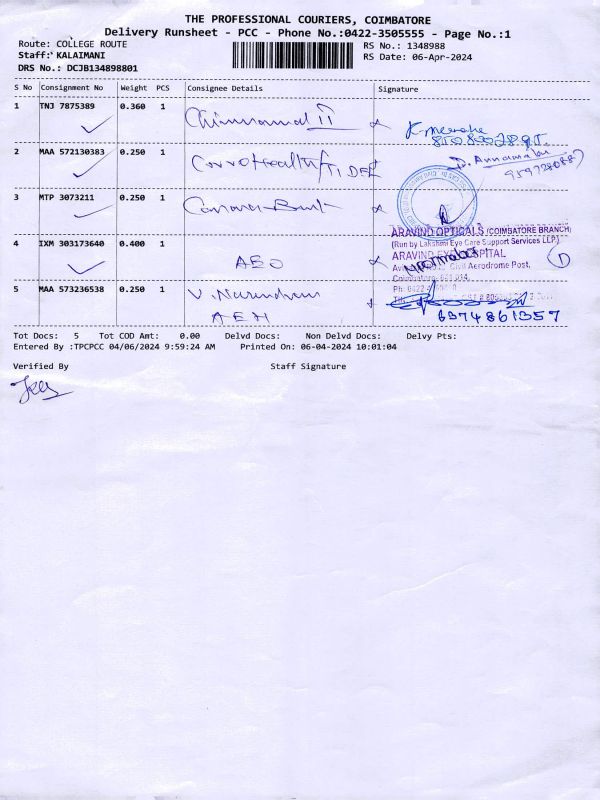 THE PROFESSIONAL COURIERS, COIMBATORE
Delivery Runsheet - PCC - Phone No.:0422-3505555 - Page No.:1
Route: COLLEGE ROUTE
RS No.: 1348988
Staff: KALAIMANI
RS Date: 06-Apr-2024
DRS No.: DCJB134898801
S No Consignment No Weight PCS Consignee Details Signature
1 TNJ 7875389 0.360 1
2 MAA 572130383 0.250 1
3 MTP 3073211 0.250 1
ARAVIND OPTICALS (COIMBATORE BRANCH)
(Run by Lakshmi Eye Care Support Services LLP.)
4 IXM 303173640 0.400 1 AEO
ARAVIND EYE HOSPITAL
Civil Aerodrome Post,
5 MAA 573236538 0.250 1 V. Narendran
AEH
6974861957
Tot Docs: 5 Tot COD Amt: 0.00 Delvd Docs: Non Delvd Docs: Delvy Pts:
Entered By :TPCPCC 04/06/2024 9:59:24 AM Printed On: 06-04-2024 10:01:04
Verified By Staff Signature